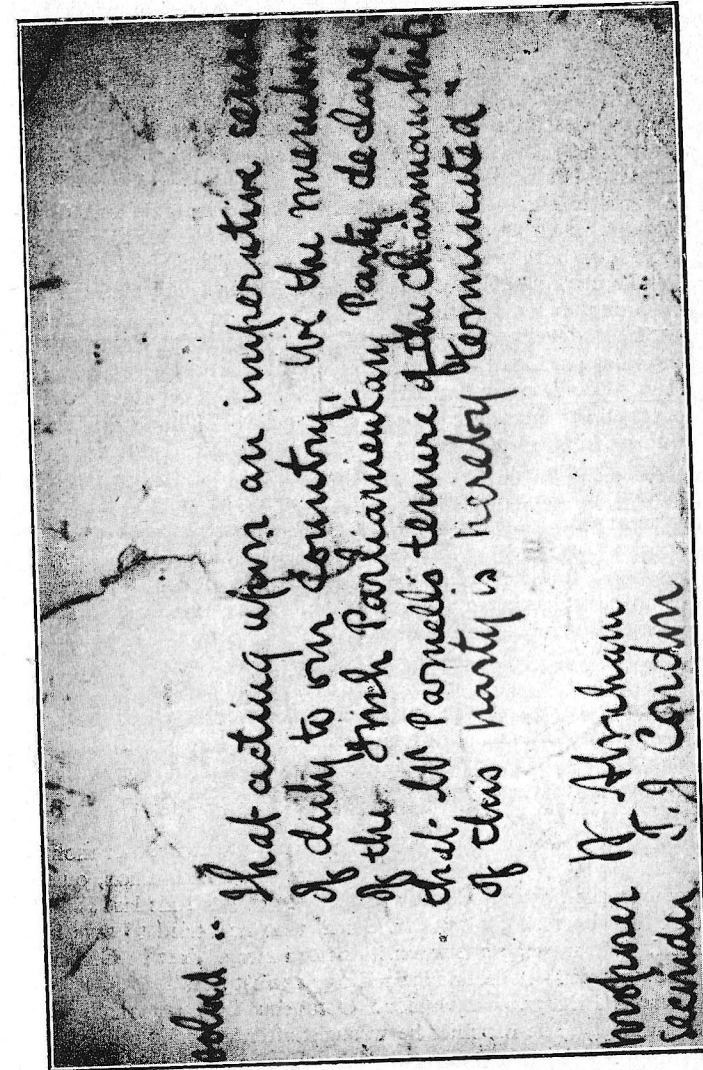 solved "
That acting upon an imperative sense
of duty to our country, We the members
of the Irish Parliamentary Party declare
that Mr Parnell's tenure of the Chairmanship
of this party is hereby terminated"
Proposer W Abraham
seconder T. J Condon